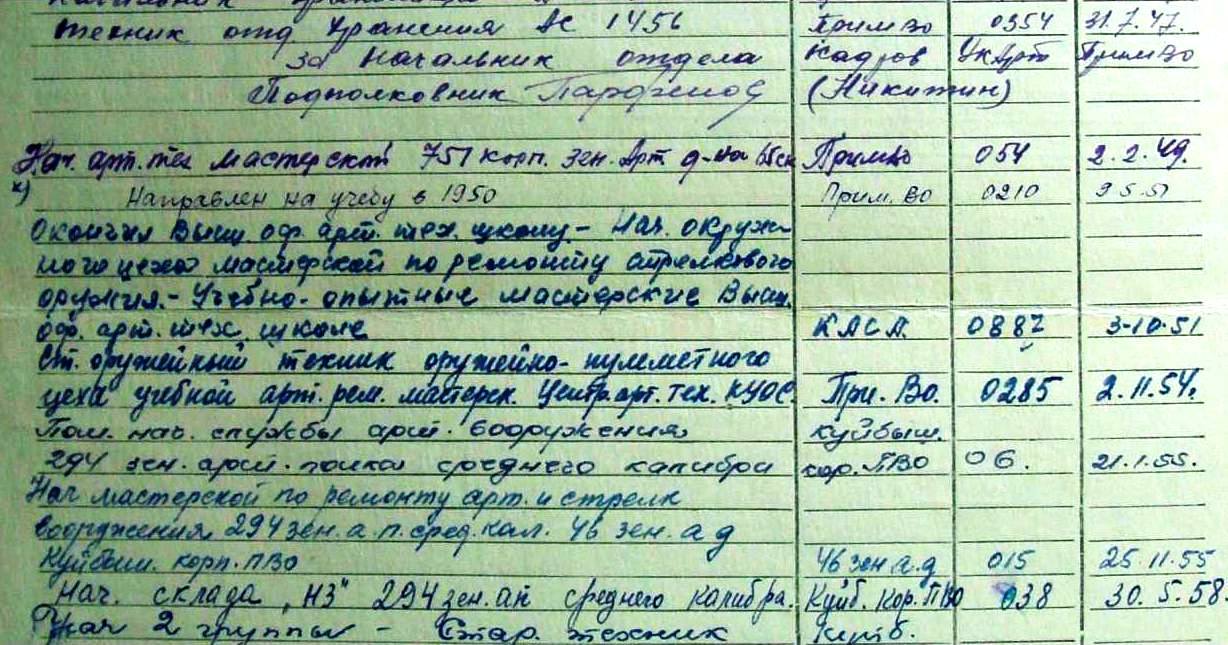 техник отд хранения АС 1456 ПримВо 0354 31.7.47.
за Начальник отдела кадров УкАрт ПримВо
Подполковник Парфенов (Никитин)
Нач. арт. тех мастерской 751 корп. зен. Арт д-на ПримВо 054 2.2.49.
х) Направлен на учебу в 1950 Прим. ВО 0210 9 5.51
Окончил Высш. оф. арт. тех. школу.- Нач. окруж-
ного цеха мастерской по ремонту стрелкового
оружия.- Учебно-опытные мастерские Высш.
оф. арт. тех школе КАСА. 0887 3-10.51
Ст. оружейный техник оружейно-пулеметного
цеха учебной арт. рем. мастерск. Центр. арт. тех. КУОС. При. Во. 0285 2.11.54.
Пом. нач. службы арт. вооружения Куйбыш.
294 зен. арт. полка среднего калибра кор. ПВО 06. 21.1.55.
Нач мастерской по ремонту арт. и стрелк
вооружения 294 зен. а. п. сред. кал. 46 зен. а д
Куйбыш. корп. ПВО 46 зен а. д 015 25.11.55
Нач. склада „НЗ" 294 зен. ап среднего калибра. Куйб. Кор. ПВО 038 30.5.58.
Нач 2 группы - Стар. техник